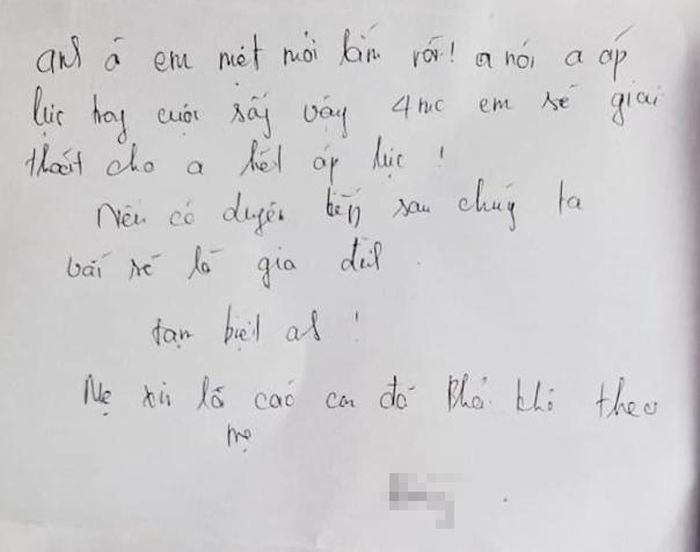 anh à em mệt mỏi lắm rồi! a nói a áp
lực hay cuộc sống vậy 4 mẹ em sẽ giải
thoát cho a hết áp lực !
Nếu có duyên kiếp sau chúng ta
vẫi sẽ là gia đình .
tạm biệt ah !
Mẹ xin lỗi các con đã phải khổ theo
mẹ